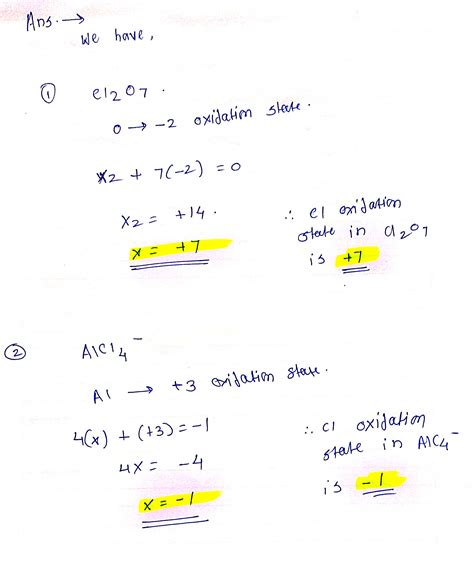 Ans. →
We have,
① Cl₂O₇.
O → -2 oxidation state.
x2 + 7(-2) = 0
x2 = +14.
x = +7
∴ Cl oxidation
state in Cl₂O₇
is +7
② AlCl₄⁻
Al → +3 oxidation state.
4(x) + (+3) = -1
4x = -4
x = -1
∴ Cl oxidation
state in AlC₄⁻
is -1